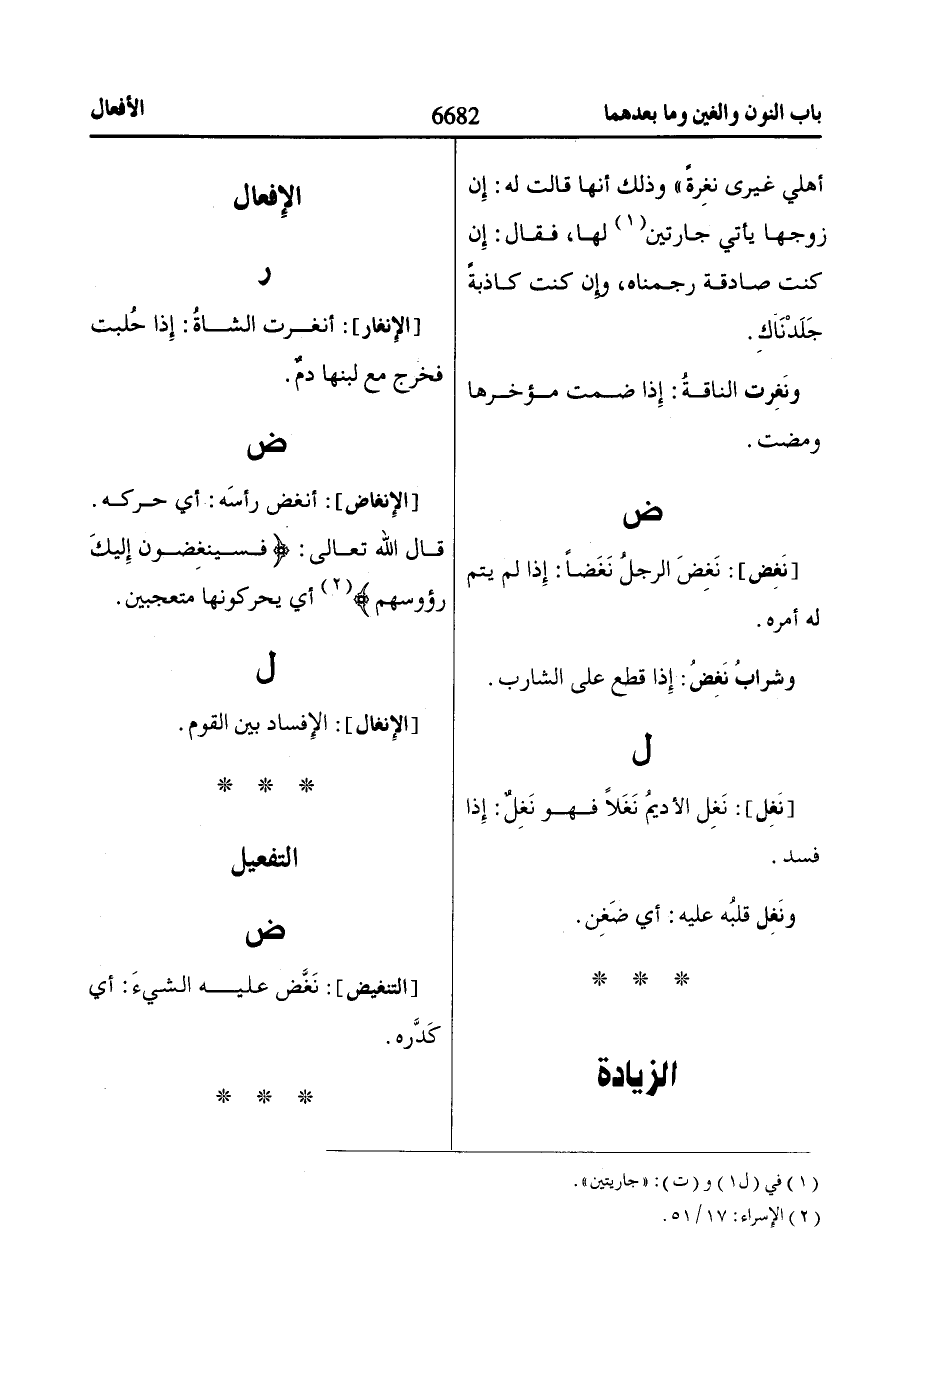 باب النون والغين وما بعدهما
6682
الأفعال
أهلي غيرى نغِرةً» وذلك أنها قالت له: إن
زوجها يأتي جارتين(١) لها، فقال: إن
كنت صادقة رجمناه، وإن كنت كاذبةً
جَلَدْنَاكِ.
ونَغِرت الناقةُ: إذا ضمت مؤخرها
ومضت.
ض
[نَغِض]: نَغِضَ الرجلُ نَغَضاً: إذا لم يتم
له أمره.
وشرابُ نَغِضُ: إذا قطع على الشارب.
ل
[نَغِل]: نَغِل الأديمُ نَغَلاً فهو نَغِلٌ: إذا
فسد.
ونَغِل قلبُه عليه: أي ضَغِن.
* * *
الزيادة
الإفعال
ر
[الإنغار]: أنغرت الشاةُ: إذا حُلبت
فخرج مع لبنها دمٌ.
ض
[الإنغاض]: أنغض رأسَه: أي حركه.
قال الله تعالى: ﴿فسينغضون إليكَ
رؤوسهم﴾(٢) أي يحركونها متعجبين.
ل
[الإنغال]: الإفساد بين القوم.
* * *
التفعيل
ض
[التنغيض]: نَغَّض عليه الشيءَ: أي
كَدَّره.
* * *
(١) في (ل١) و(ت): «جاريتين».
(٢) الإسراء: ٥١/١٧.